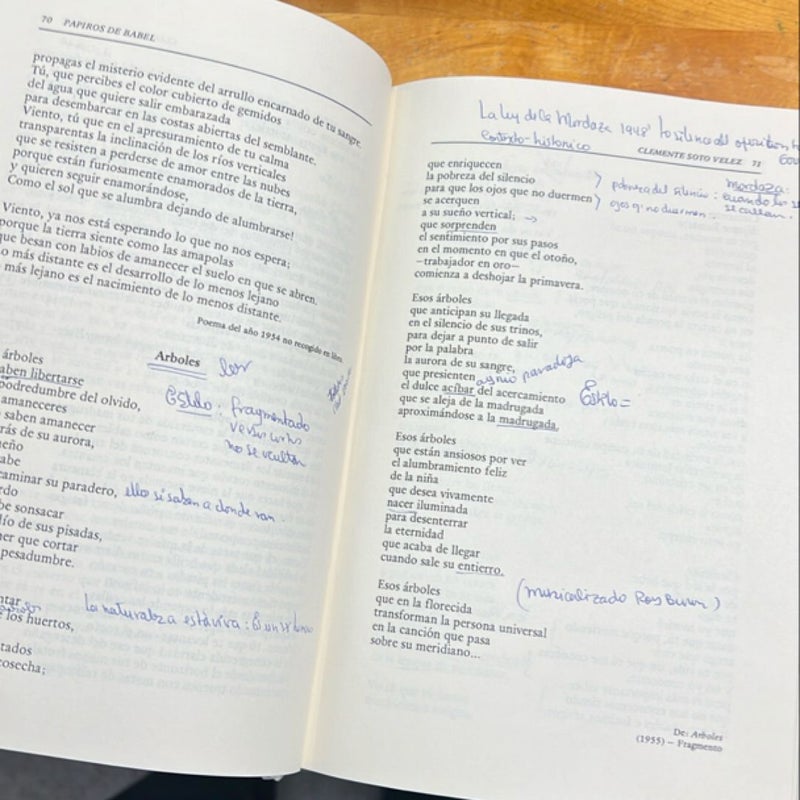 70 PAPIROS DE BABEL
propagas el misterio evidente del arrullo encarnado de tu sangre.
Tú, que percibes el color cubierto de gemidos
del agua que quiere salir embarazada
para desembarcar en las costas abiertas del semblante.
Viento, tú que en el apresuramiento de tu calma
transparentas la inclinación de los ríos verticales
que se resisten a perderse de amor entre las nubes
porque están furiosamente enamorados de la tierra,
y quieren seguir enamorándose,
Como el sol que se alumbra dejando de alumbrarse!
Viento, ya nos está esperando lo que no nos espera;
porque la tierra siente como las amapolas
que besan con labios de amanecer el suelo en que se abren.
o más distante es el desarrollo de lo menos lejano
más lejano es el nacimiento de lo menos distante.
Poema del año 1954 no recogido en libro.
Arboles leer
árboles
aben libertarse
podredumbre del olvido,
amaneceres
saben amanecer
rás de su aurora,
eño
abe
aminar su paradero, ellos si saben a donde van.
rdo
be sonsacar
lío de sus pisadas,
er que cortar
pesadumbre.
Estilo: fragmentado
versos cortos
no se ocultan
ntar
e los huertos,
la naturaleza está viva:
tados
osecha;
La ley de la Mordaza 1948
contexto-historico
CLEMENTE SOTO VELEZ 71
que enriquecen
la pobreza del silencio
para que los ojos que no duermen
se acerquen
a su sueño vertical;
que sorprenden
el sentimiento por sus pasos
en el momento en que el otoño,
—trabajador en oro—
comienza a deshojar la primavera.
pobreza del silencio:
ojos q' no duermen:
Mordaza:
cuando lo
se callan.
Esos árboles
que anticipan su llegada
en el silencio de sus trinos,
para dejar a punto de salir
por la palabra
la aurora de su sangre,
que presienten
el dulce acíbar del acercamiento
que se aleja de la madrugada
aproximándose a la madrugada.
agrio paradoja
Estilo=
Esos árboles
que están ansiosos por ver
el alumbramiento feliz
de la niña
que desea vivamente
nacer iluminada
para desenterrar
la eternidad
que acaba de llegar
cuando sale su entierro.
Esos árboles
que en la florecida
transforman la persona universal
en la canción que pasa
sobre su meridiano...
(musicalizado Roy Brown)
De: Arboles
(1955) – Fragmento